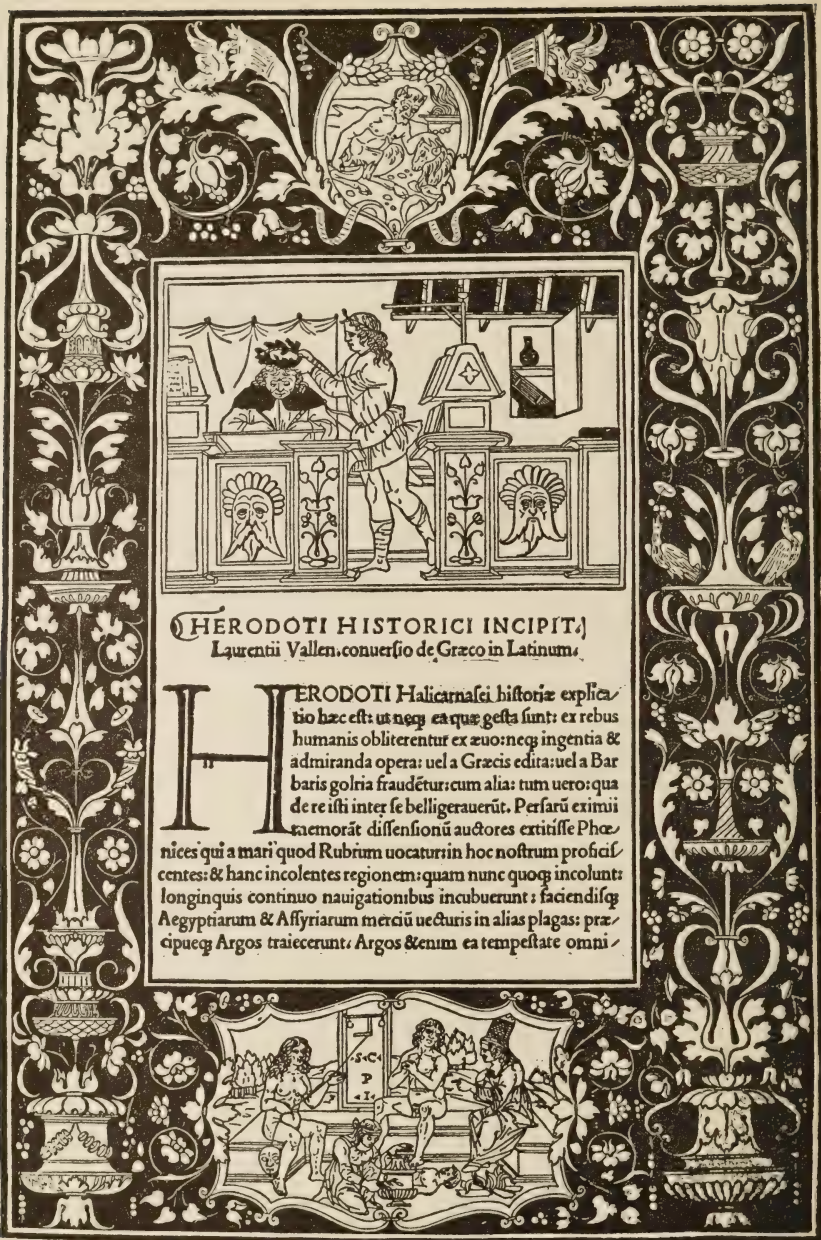 HERODOTI HISTORICI INCIPIT.
Laurentii Vallen. conuerſio de Græco in Latinum.
HERODOTI Halicarnaſei hiſtoriæ explica/
tio hæc eſt: ut neqꝫ ea quæ geſta ſunt: ex rebus
humanis obliterentur ex æuo: neqꝫ ingentia &
admiranda opera: uel a Græcis edita: uel a Bar
baris golria fraudẽtur: cum alia: tum uero: qua
de re iſti inter ſe belligerauerũt. Perſarũ eximii
memorãt diſſenſionũ auctores extitiſſe Phœ/
nices qui a mari quod Rubrum uocatur: in hoc noſtrum profici​ſ
centes: & hanc incolentes regionem: quam nunc quoqꝫ incolunt:
longinquis continuo nauigationibus incubuerunt: faciendiſqꝫ
Aegyptiarum & Aſſyriarum merciũ uecturis in alias plagas: præ/
cipueqꝫ Argos traiecerunt. Argos &enim ea tempeſtate omni/
·S·C·
P
·I·